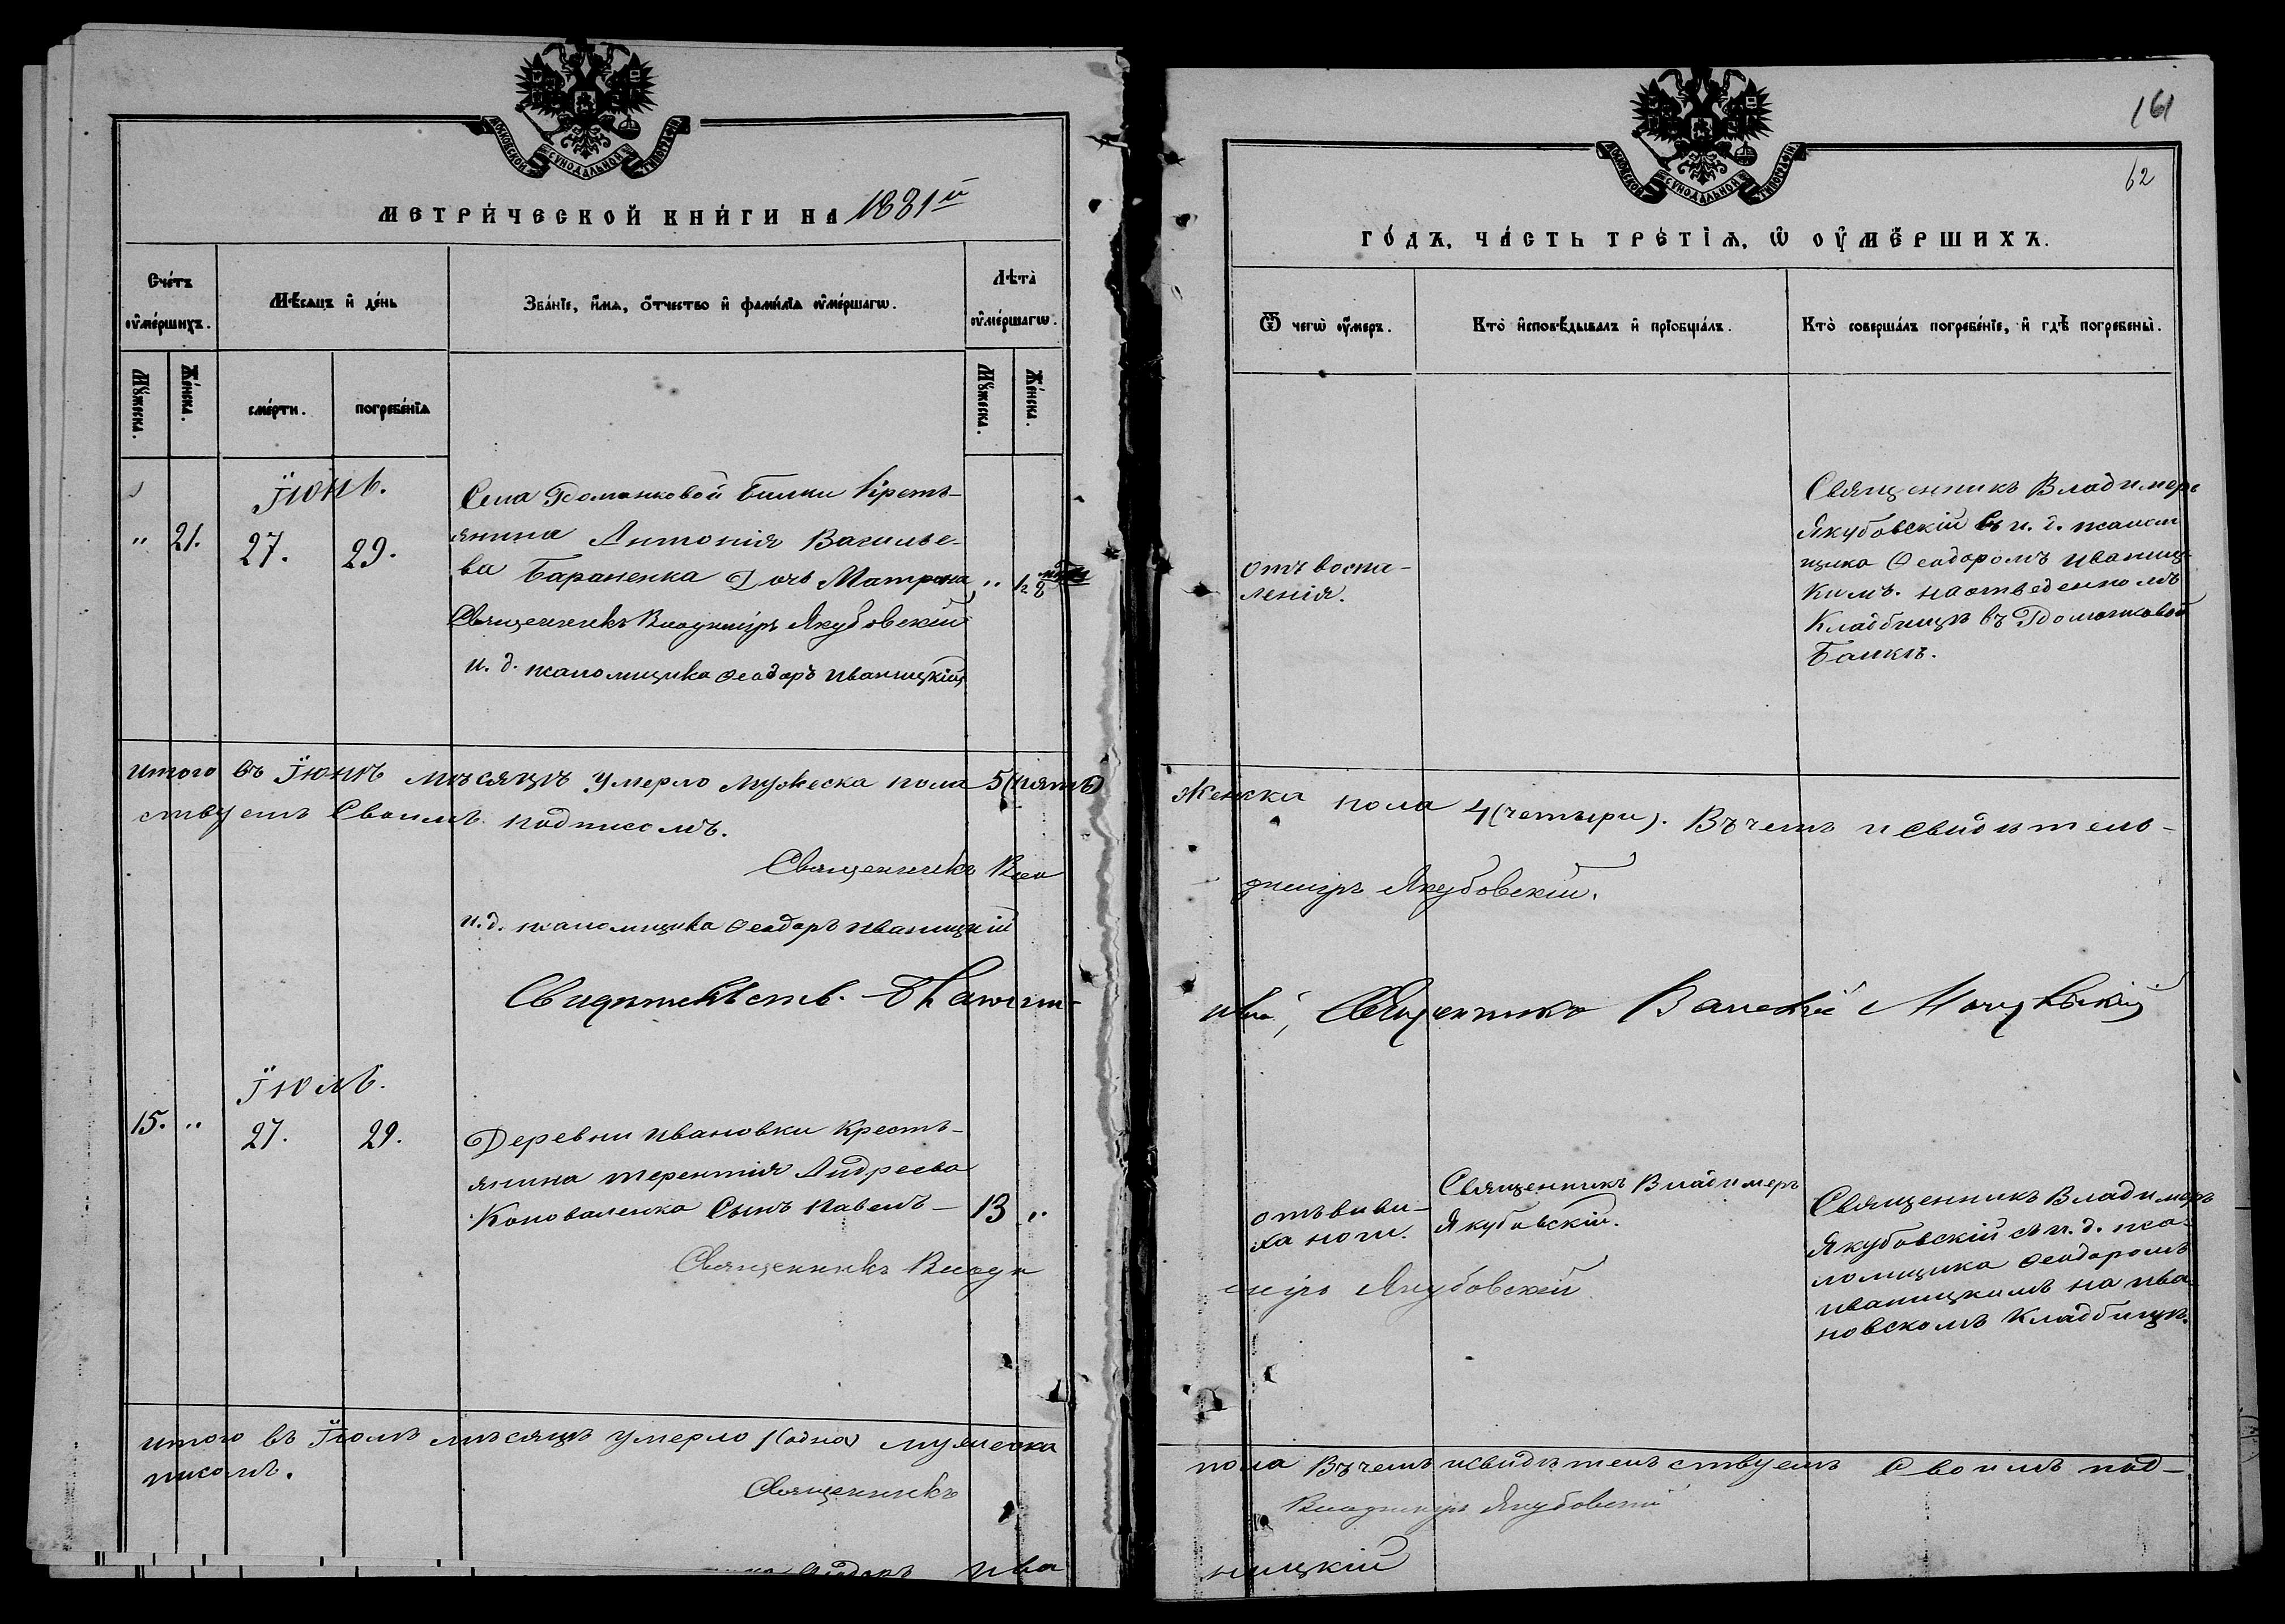 МОСКОВСКОЙ СѴНОДАЛЬНОЙ ТИПОГРАФІИ
МЕТРИ́ЧЕСКОЙ КНИ́ГИ НА 1881й
Счéтъ ᲂу҆мéршихъ.
Мѣ́сяцъ и҆ де́нь
Зва́нїе, и҆́мѧ, ѻ҆́тчество и҆ фамилїа ᲂу҆мéршагѡ.
Лѣта̀ ᲂу҆мéршагѡ.
Мꙋ́жеска.
Же́нска.
смéрти.
погребе́нїѧ
Мꙋ́жеска.
Же́нска.
Їюнь.
„ 21. 27. 29.
Села Домонковой Балки Кресть-
янина Антонія Василье-
ва Бараненка Дочь Матрона „ ½
Священникъ Владиміръ Якубовскій
и. д. псаломщика Феодоръ Иваницкій
Итого въ Їюнѣ мѣсяцѣ умерло мужеска пола 5 (пять)
ствуемъ Своимъ подписомъ.
Священникъ Вла
и. д. псаломщика Феодоръ Иваницкій
Їюль.
15. „ 27. 29.
Деревни Ивановки Кресть-
янина Терентія Андреева
Коноваленка Сынъ Павелъ – 13 „
Священникъ Влади
Итого въ Їюлѣ мѣсяцѣ умерло 1 (одна) мужеска
писомъ.
Священникъ
Феодоръ Ива
161
62
МОСКОВСКОЙ СѴНОДАЛЬНОЙ ТИПОГРАФІИ
ГО́ДЪ, ЧА́СТЬ ТРЕ́ТЇѦ, Ѡ҆ ОУ҆МЕ́РШИХЪ.
Ѿ чегѡ̀ ᲂу҆́меръ.
Кто̀ и҆сповѣ́дывалъ и҆ прїѡбща́лъ.
Кто̀ соверша́лъ погребе́нїе, и҆ гдѣ̀ погребены̀.
отъ воспа-
ленія.
Священникъ Владимеръ
Якубовскій съ и. д. псалом
щика Феодоромъ Иваниц-
кимъ. на отведенномъ
Кладбищѣ въ Домонковой
Балкѣ.
Женска пола 4 (четыри). Въ чемъ и свидѣтель-
диміръ Якубовскій.
отъ виви-
ха ноги.
Священникъ Владимеръ
Якубовскій.
Священникъ Владимеръ
Якубовскій съ и. д. пса-
ломщика Феодоромъ
Иваницкимъ на Ива-
новскомъ Кладбищѣ.
міръ Якубовскій
пола Въ чемъ и свидѣтельствуемъ Своимъ под-
Владиміръ Якубовскій
ницкій